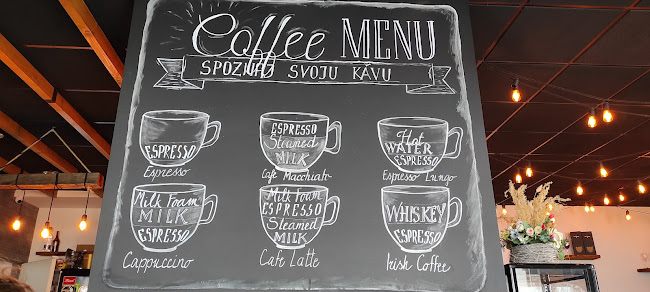 Coffee MENU
SPOZNAJ SVOJU KÁVU
ESPRESSO
Espresso
ESPRESSO
Steamed
MILK
Cafe Macchiato
Hot
WATER
ESPRESSO
Espresso Lungo
Milk Foam
MILK
ESPRESSO
Cappuccino
Milk Foam
ESPRESSO
Steamed
MILK
Cafe Latte
WHISKEY
ESPRESSO
Irish Coffee